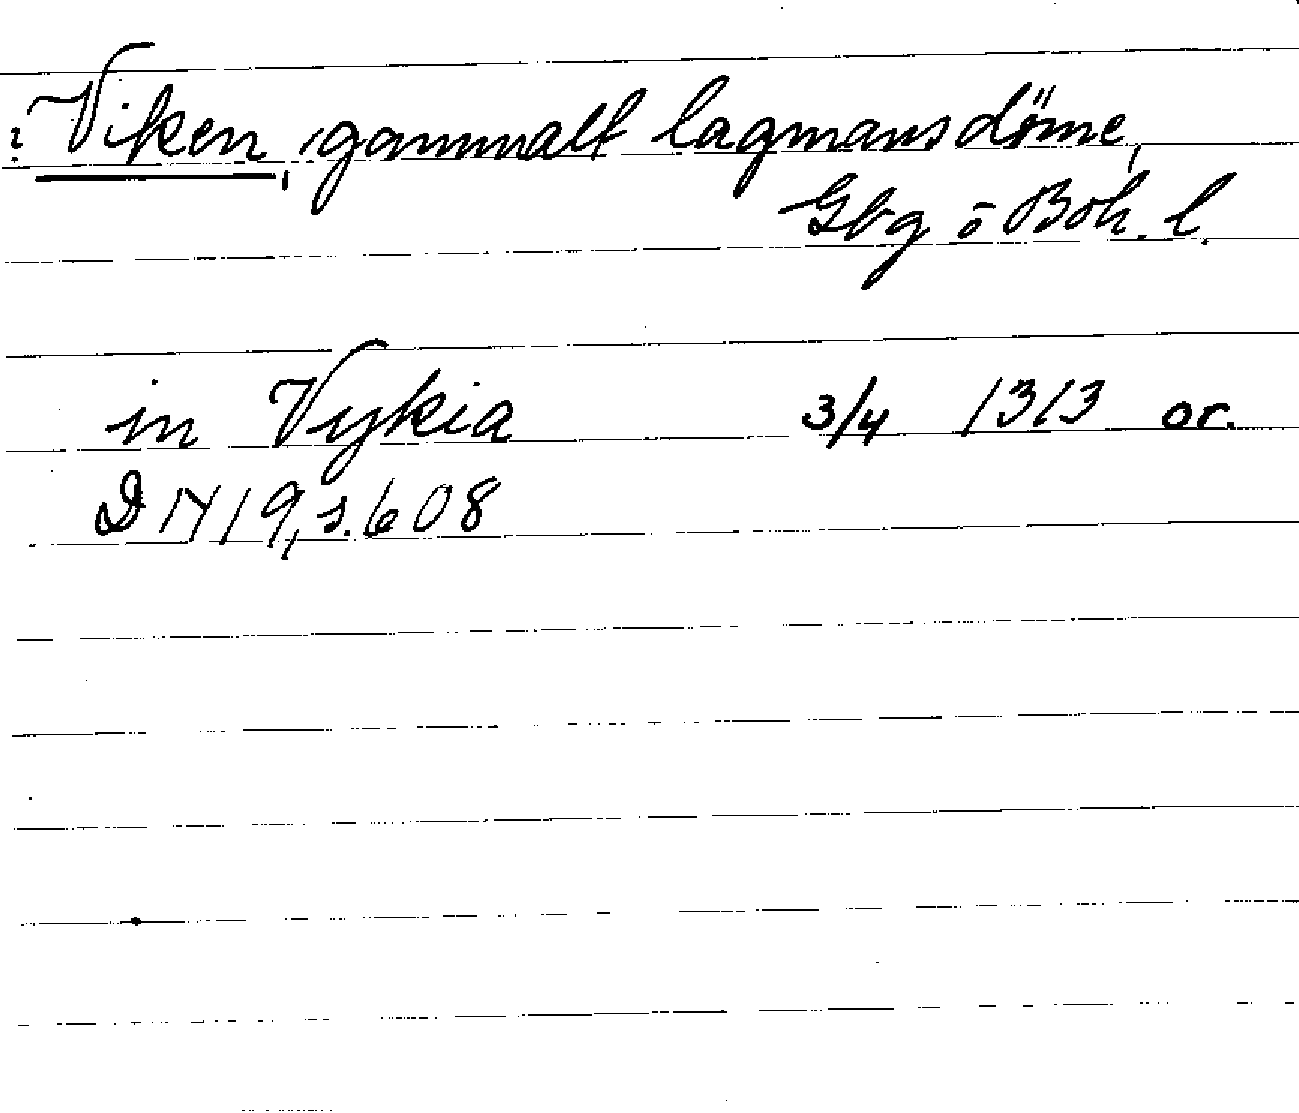 ? Viken, gammalt lagmansdöme,
Gbg o Boh. l.
in Vykia 3/4 1313 or.
D N 19, s. 608